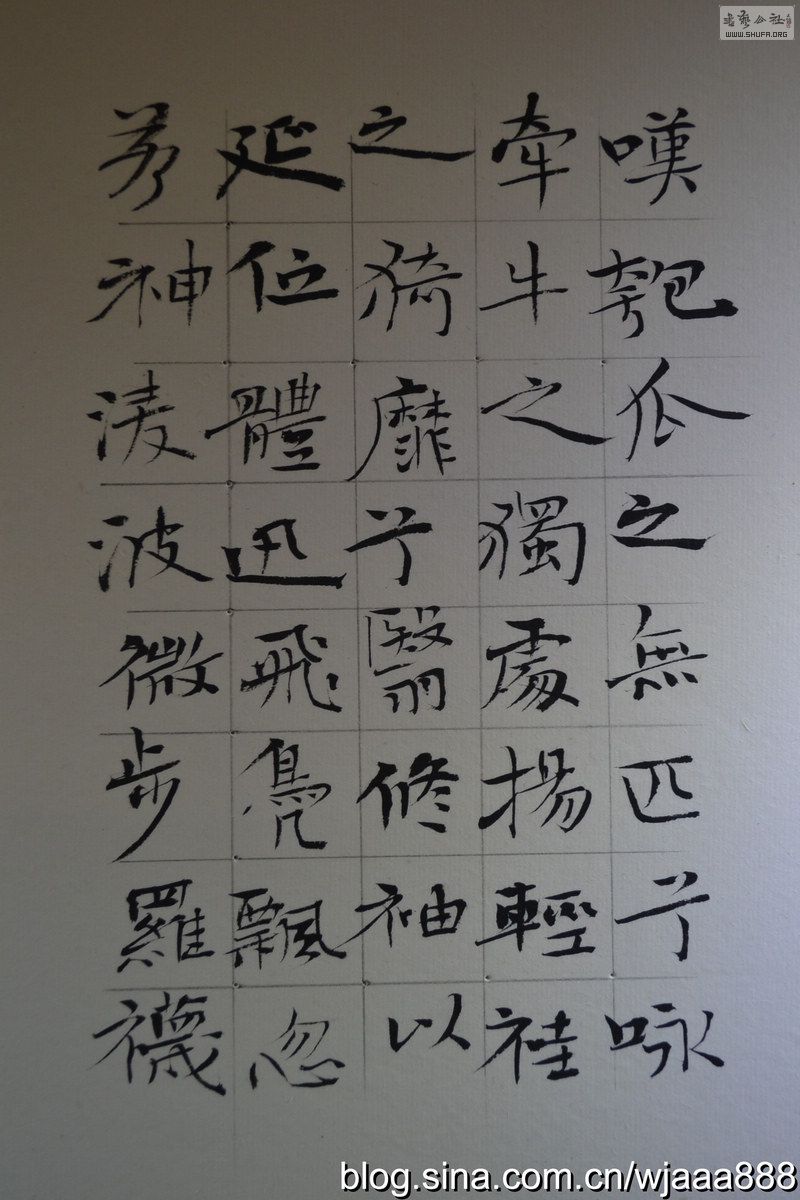 嘆匏瓜之無匹兮咏
牽牛之獨處揚輕袿
之猗靡兮翳修袖以
延佇體迅飛鳧飄忽
若神淩波微步羅襪
書藝公社
WWW.SHUFA.ORG
blog.sina.com.cn/wjaaa888